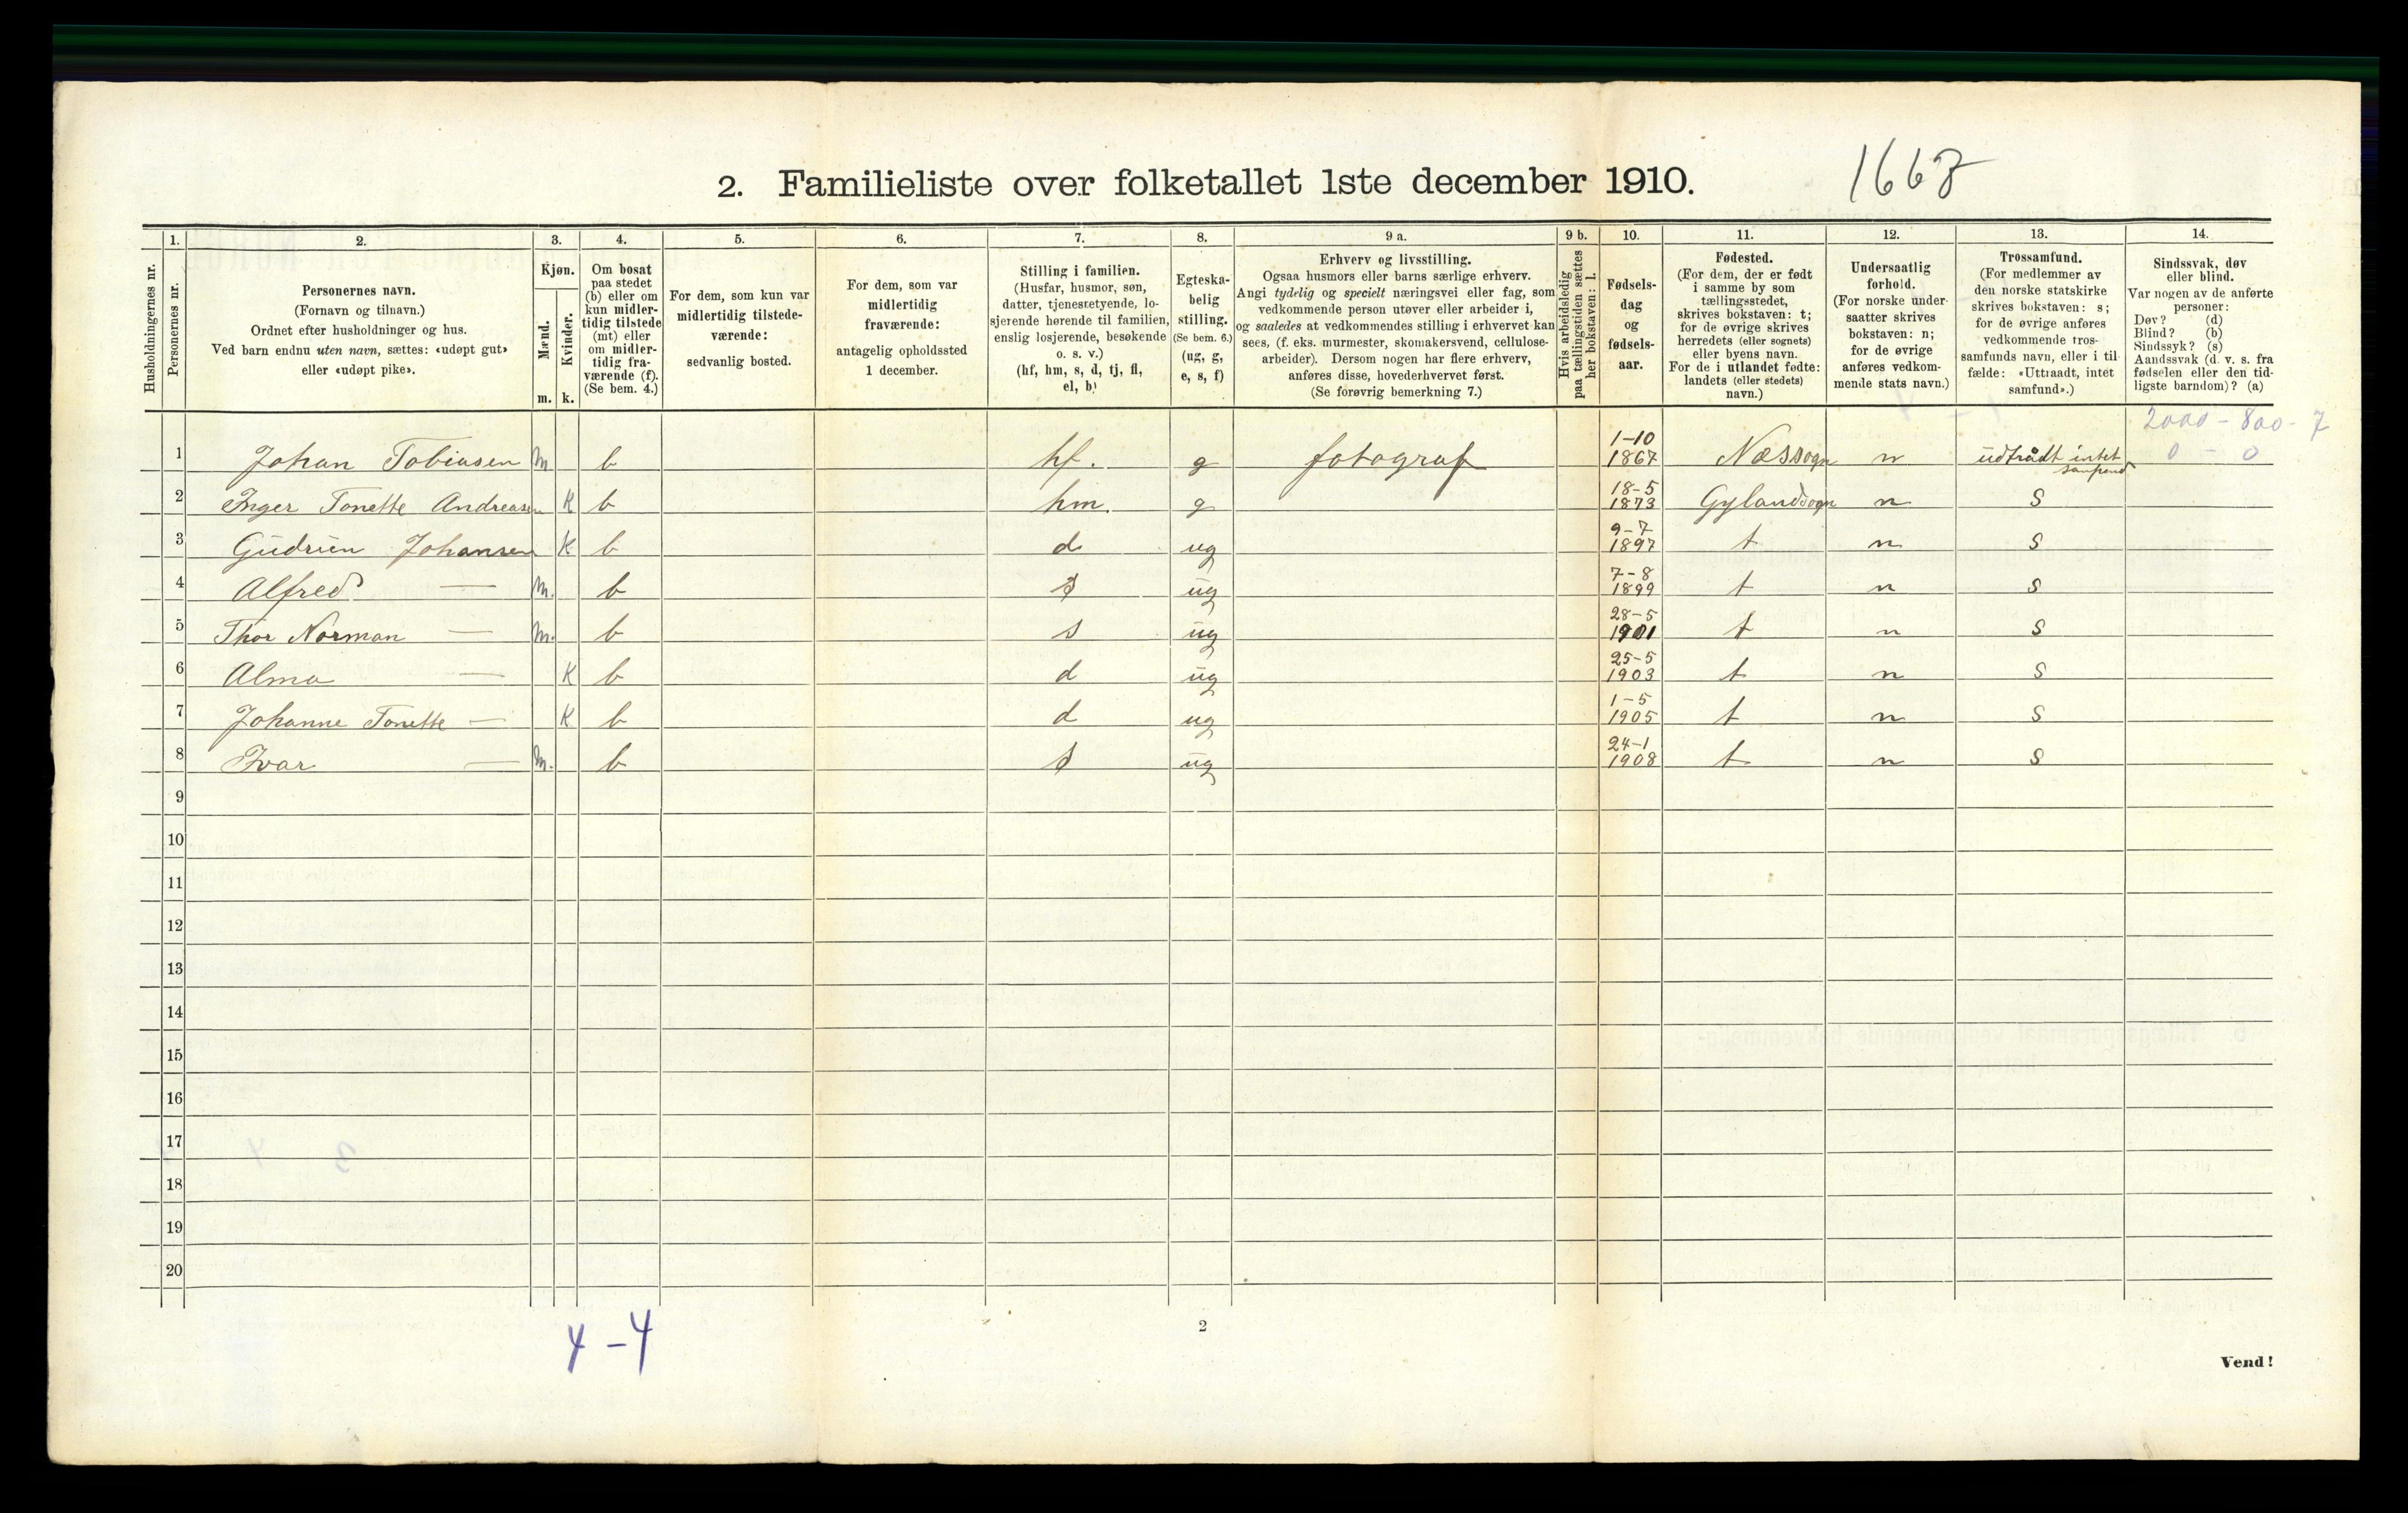 2. Familieliste over folketallet 1ste december 1910.
1668
1. 2. 3. 4. 5. 6. 7. 8. 9 a. 9 b. 10. 11. 12. 13. 14.
Husholdningernes nr.
Personernes nr.
Personernes navn.
(Fornavn og tilnavn.)
Ordnet efter husholdninger og hus.
Ved barn endnu uten navn, sættes: «udøpt gut»
eller «udøpt pike».
Kjøn.
Mænd.
Kvinder.
m. k.
Om bosat
paa stedet
(b) eller om
kun midler-
tidig tilstede
(mt) eller
om midler-
tidig fra-
værende (f).
(Se bem. 4.)
For dem, som kun var
midlertidig tilstede-
værende:
sedvanlig bosted.
For dem, som var
midlertidig
fraværende:
antagelig opholdssted
1 december.
Stilling i familien.
(Husfar, husmor, søn,
datter, tjenestetyende, lo-
sjerende hørende til familien,
enslig losjerende, besøkende
o. s. v.)
(hf, hm, s, d, tj, fl,
el, b)
Egteska-
belig
stilling.
(Se bem. 6.)
(ug, g,
e, s, f)
Erhverv og livsstilling.
Ogsaa husmors eller barns særlige erhverv.
Angi tydelig og specielt næringsvei eller fag, som
vedkommende person utøver eller arbeider i,
og saaledes at vedkommendes stilling i erhvervet kan
sees, (f. eks. murmester, skomakersvend, cellulose-
arbeider). Dersom nogen har flere erhverv,
anføres disse, hovederhvervet først.
(Se forøvrig bemerkning 7.)
Hvis arbeidsledig
paa tællingstiden sættes
her bokstaven: l.
Fødsels-
dag
og
fødsels-
aar.
Fødested.
(For dem, der er født
i samme by som
tællingsstedet,
skrives bokstaven: t;
for de øvrige skrives
herredets (eller sognets)
eller byens navn.
For de i utlandet fødte:
landets (eller stedets)
navn.)
Undersaatlig
forhold.
(For norske under-
saatter skrives
bokstaven: n;
for de øvrige
anføres vedkom-
mende stats navn.)
Trossamfund.
(For medlemmer av
den norske statskirke
skrives bokstaven: s;
for de øvrige anføres
vedkommende tros-
samfunds navn, eller i til-
fælde: «Uttraadt, intet
samfund».)
Sindssvak, døv
eller blind.
Var nogen av de anførte
personer:
Døv? (d)
Blind? (b)
Sindssyk? (s)
Aandssvak (d. v. s. fra
fødselen eller den tid-
ligste barndom)? (a)
2000 - 800 - 7
0 - 0
1 Johan Tobiasen m b hf. g fotograf 1-10 1867 Næssogn n udtrådt intet samfund
2 Inger Tonette Andreasen K b hm. g 18-5 1873 Gylandsogn n S
3 Gudrun Johansen K b d ug 9-7 1897 t n S
4 Alfred — m. b s ug 7-8 1899 t n S
5 Thor Norman — m. b s ug 28-5 1901 t n S
6 Alma — K b d ug 25-5 1903 t n S
7 Johanne Tonette — K b d ug 1-5 1905 t n S
8 Ivar — m. b s ug 24-1 1908 t n S
9
10
11
12
13
14
15
16
17
18
19
20
4 - 4
2
Vend!